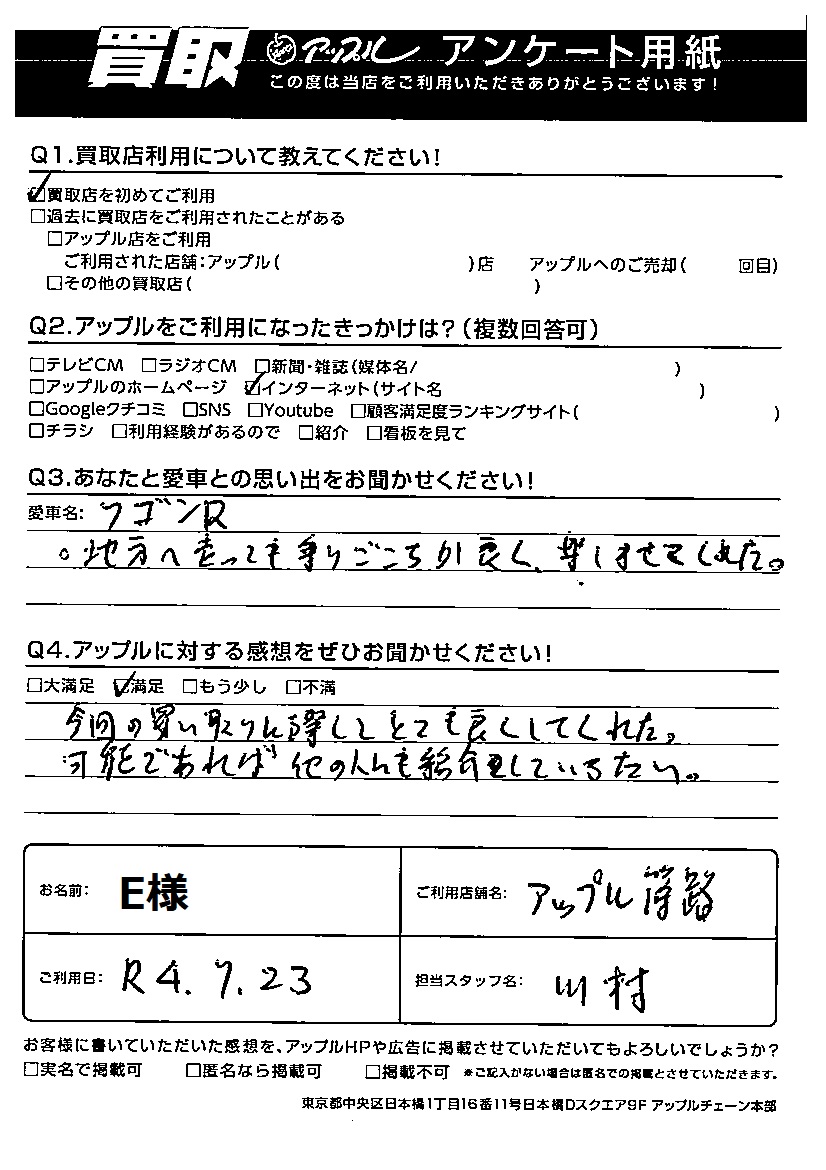 買取 アップル アンケート用紙
この度は当店をご利用いただきありがとうございます!
Q1.買取店利用について教えてください!
☑買取店を初めてご利用
□過去に買取店をご利用されたことがある
□アップル店をご利用
ご利用された店舗:アップル( )店 アップルへのご売却( 回目)
□その他の買取店( )
Q2.アップルをご利用になったきっかけは?(複数回答可)
□テレビCM □ラジオCM □新聞・雑誌(媒体名/ )
□アップルのホームページ ☑インターネット(サイト名 )
□Googleクチコミ □SNS □Youtube □顧客満足度ランキングサイト( )
□チラシ □利用経験があるので □紹介 □看板を見て
Q3.あなたと愛車との思い出をお聞かせください!
愛車名: ワゴンR
。地方へ走っても乗りごこちが良く、楽しませてくれた。
Q4.アップルに対する感想をぜひお聞かせください!
□大満足 ☑満足 □もう少し □不満
今回の買い取りに際しとても良くしてくれた。
可能であれば他の人にも紹介していきたい。
お名前: E様 ご利用店舗名: アップル篠路
ご利用日: R4.7.23 担当スタッフ名: 川村
お客様に書いていただいた感想を、アップルHPや広告に掲載させていただいてもよろしいでしょうか?
□実名で掲載可 □匿名なら掲載可 □掲載不可 ※ご記入がない場合は匿名での掲載とさせていただきます。
東京都中央区日本橋1丁目16番11号日本橋Dスクエア9F アップルチェーン本部